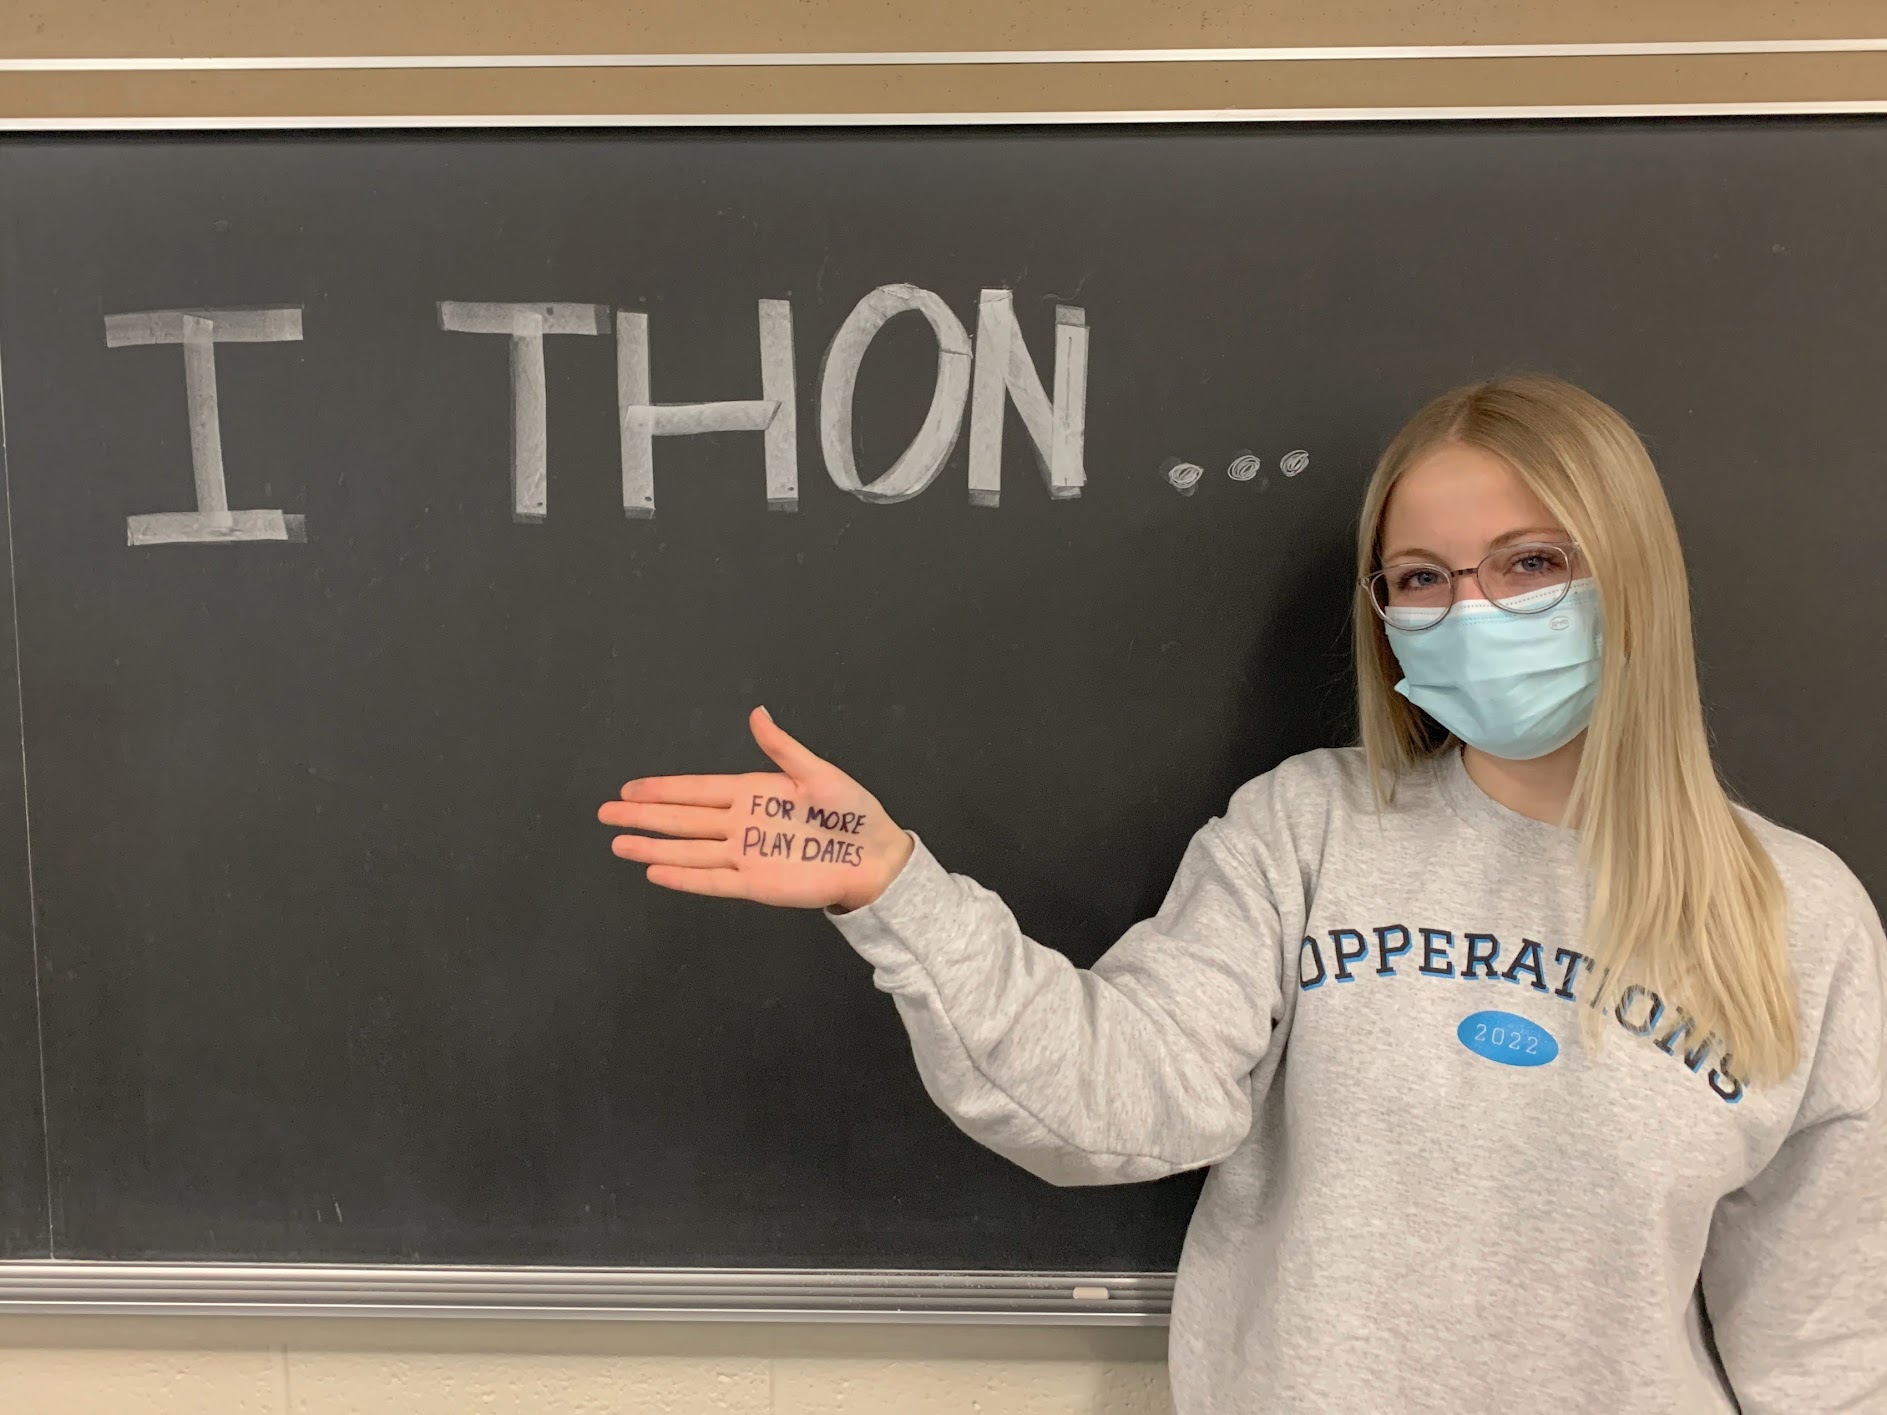 I THON...
FOR MORE
PLAY DATES
OPPERATIONS
2022